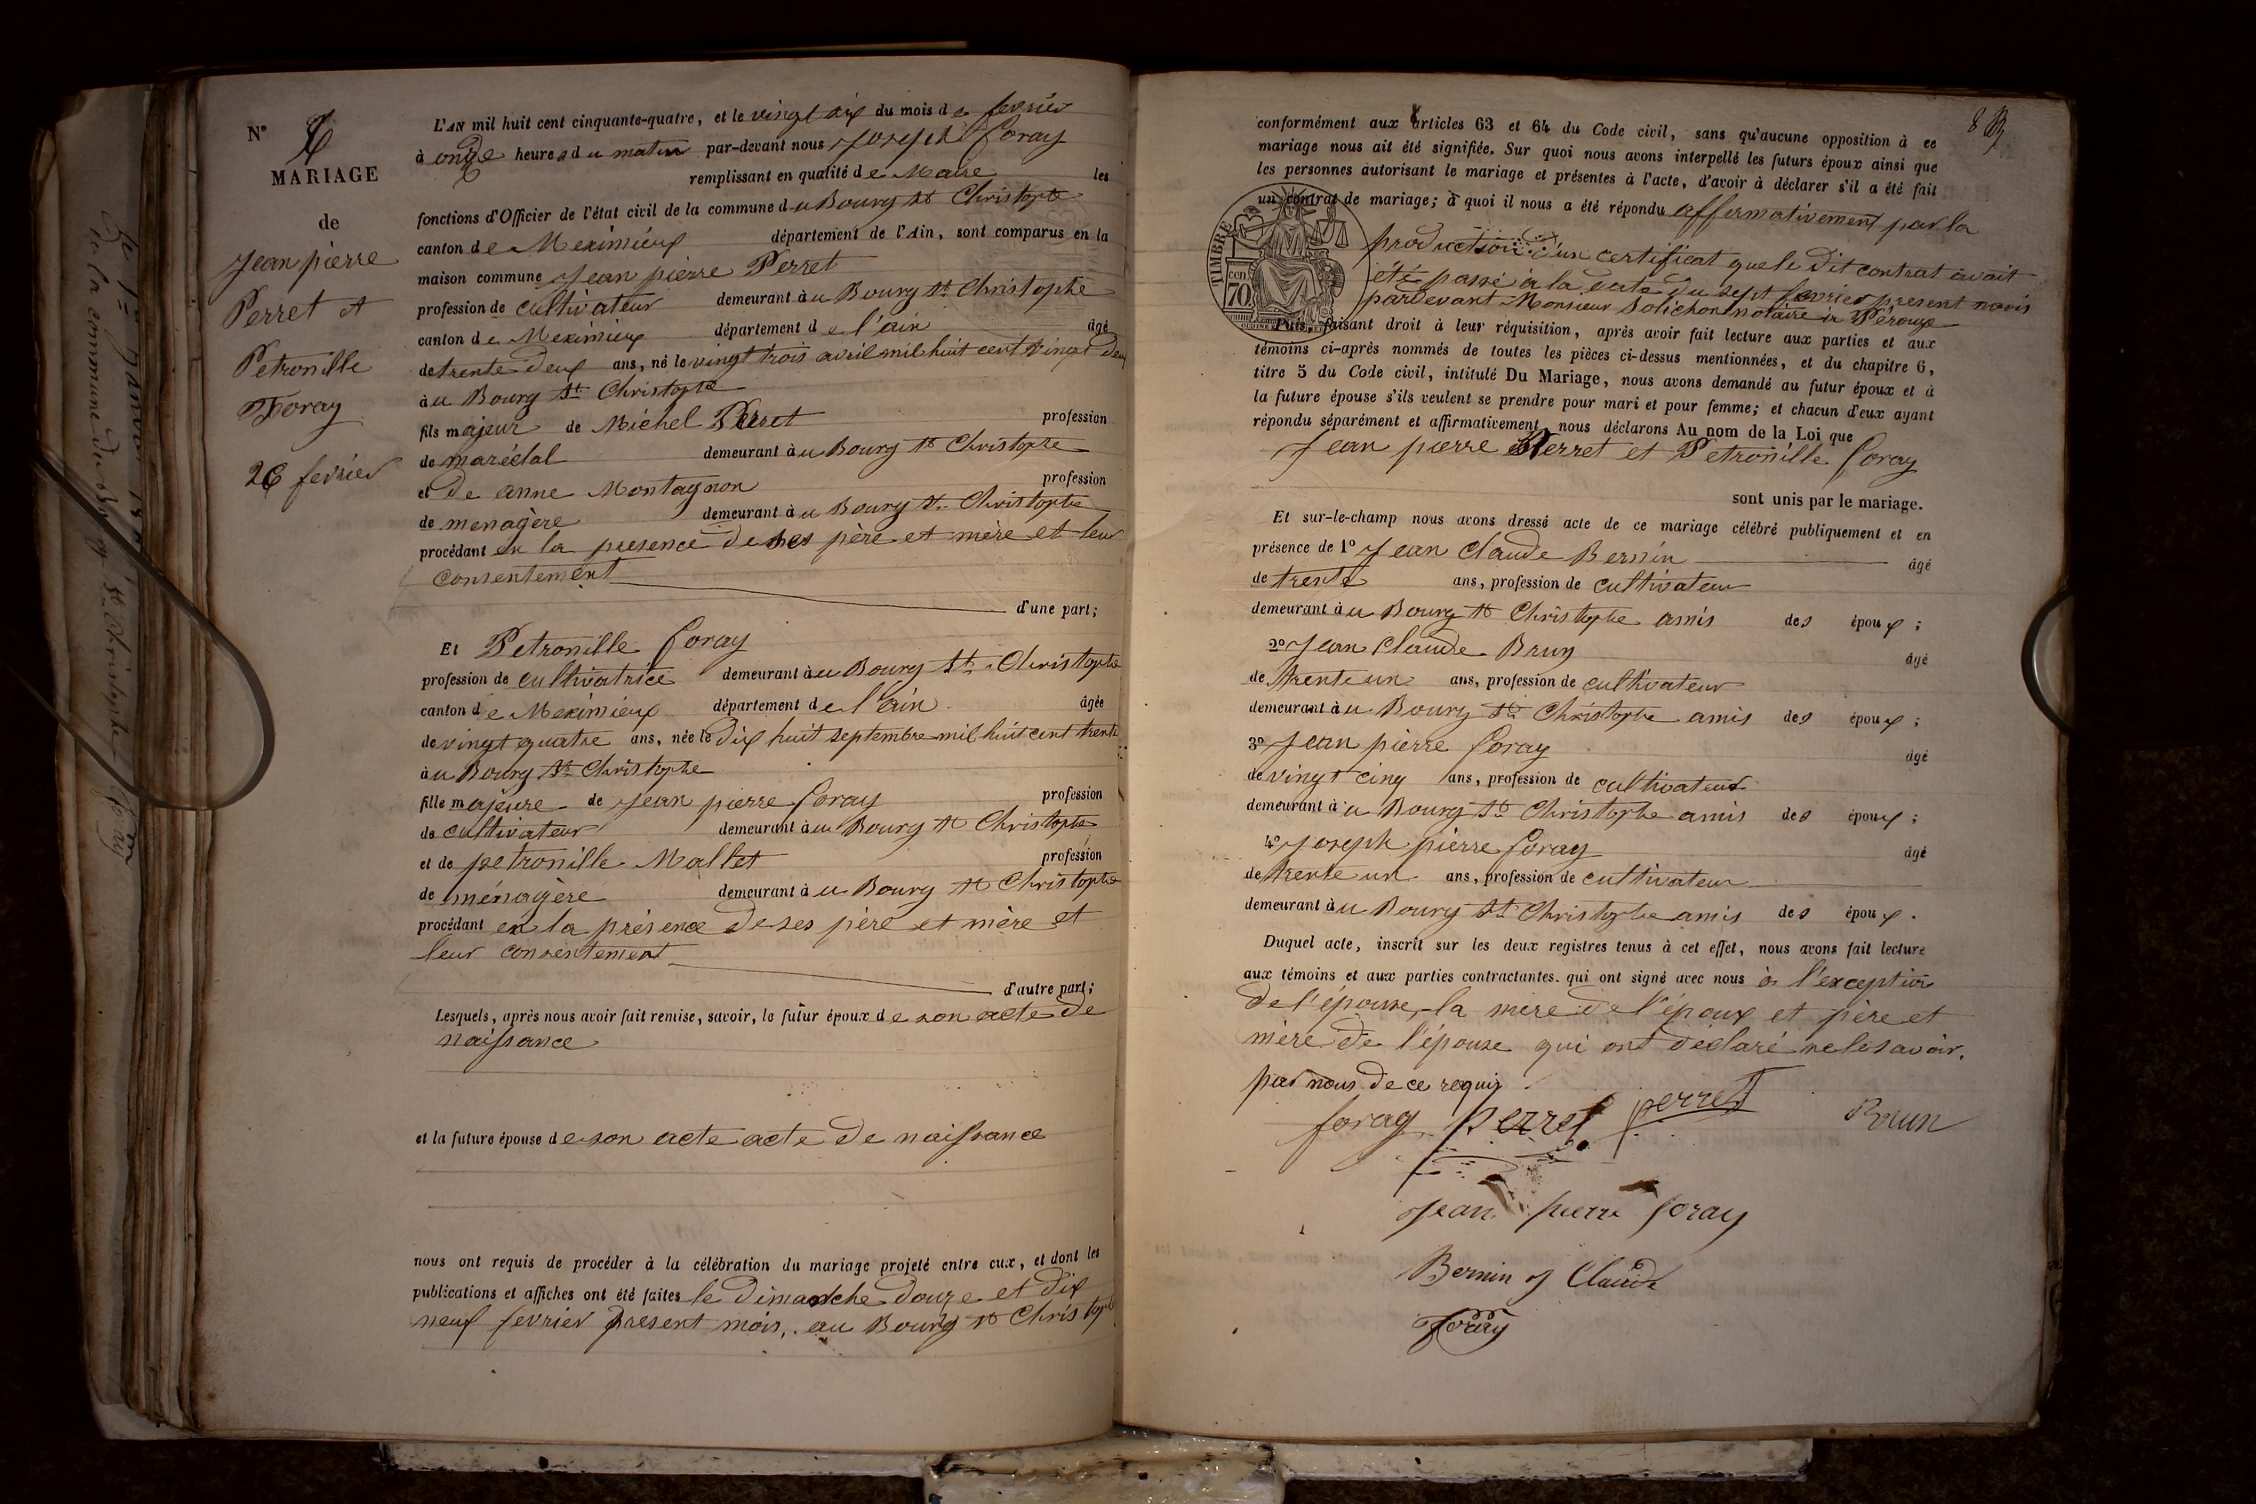 N° 6
MARIAGE
de
Jean pierre
Perret et
Petronille
Foray
26 fevrier
L'AN mil huit cent cinquante-quatre, et le vingt six du mois de fevrier
à onze heures du matin par-devant nous Joseph Foray
remplissant en qualité de Maire les
fonctions d'Officier de l'état civil de la commune du Bourg St Christophe
canton de Meximieux département de l'Ain, sont comparus en la
maison commune Jean pierre Perret
profession de cultivateur demeurant au Bourg St Christophe
canton de Meximieux département de l'ain âgé
de trente deux ans, né le vingt trois avril mil huit cent vingt deux
au Bourg St Christophe
fils majeur de Michel Perret profession
de maréchal demeurant au Bourg St Christophe
et de anne Montagnon profession
de menagère demeurant au Bourg St Christophe
procédant en la presence de ses père et mère et leur
consentement
d'une part;
Et Petronille Foray
profession de cultivatrice demeurant au Bourg St Christophe
canton de Meximieux département de l'ain âgée
de vingt quatre ans, née le dix huit septembre mil huit cent trente
au Bourg St Christophe
fille majeure de Jean pierre Foray profession
de cultivateur demeurant au Bourg St Christophe
et de petronille Mallet profession
de ménagère demeurant au Bourg St Christophe
procédant en la présence de ses père et mère et
leur consentement
d'autre part;
Lesquels, après nous avoir fait remise, savoir, le futur époux de son acte de
naissance
et la future épouse de son acte acte de naissance
nous ont requis de procéder à la célébration du mariage projeté entre eux, et dont les
publications et affiches ont été faites le dimanche douze et dix
neuf fevrier present mois, au Bourg St Christophe
8
conformément aux articles 63 et 64 du Code civil, sans qu'aucune opposition à ce
mariage nous ait été signifiée. Sur quoi nous avons interpellé les futurs époux ainsi que
les personnes autorisant le mariage et présentes à l'acte, d'avoir à déclarer s'il a été fait
un contrat de mariage; à quoi il nous a été répondu affermativement par la
production d'un certificat que le dit contrat avait
été passé à la date du sept fevrier present mois
pardevant Monsieur Solichon notaire à Pérouge
TIMBRE
cen 70
Puis, faisant droit à leur réquisition, après avoir fait lecture aux parties et aux
témoins ci-après nommés de toutes les pièces ci-dessus mentionnées, et du chapitre 6,
titre 5 du Code civil, intitulé Du Mariage, nous avons demandé au futur époux et à
la future épouse s'ils veulent se prendre pour mari et pour femme; et chacun d'eux ayant
répondu séparément et affirmativement, nous déclarons Au nom de la Loi que
Jean pierre Perret et Petronille Foray
sont unis par le mariage.
Et sur-le-champ nous avons dressé acte de ce mariage célébré publiquement et en
présence de 1° Jean Claude Bernin âgé
de trente ans, profession de cultivateur
demeurant au Bourg St Christophe amis des époux;
2° Jean Claude Brun âgé
de trente un ans, profession de cultivateur
demeurant au Bourg St Christophe amis des époux;
3° Jean pierre Foray âgé
de vingt cinq ans, profession de cultivateur
demeurant au Bourg St Christophe amis des époux;
4° Joseph pierre Foray âgé
de trente un ans, profession de cultivateur
demeurant au Bourg St Christophe amis des époux.
Duquel acte, inscrit sur les deux registres tenus à cet effet, nous avons fait lecture
aux témoins et aux parties contractantes. qui ont signé avec nous à l'exception
de l'épouse, la mère de l'époux et père et
mère de l'épouse qui ont déclaré ne le savoir.
par nous de ce requis
foray perret perret Brun
Jean pierre foray
Bernin Claude
Foray